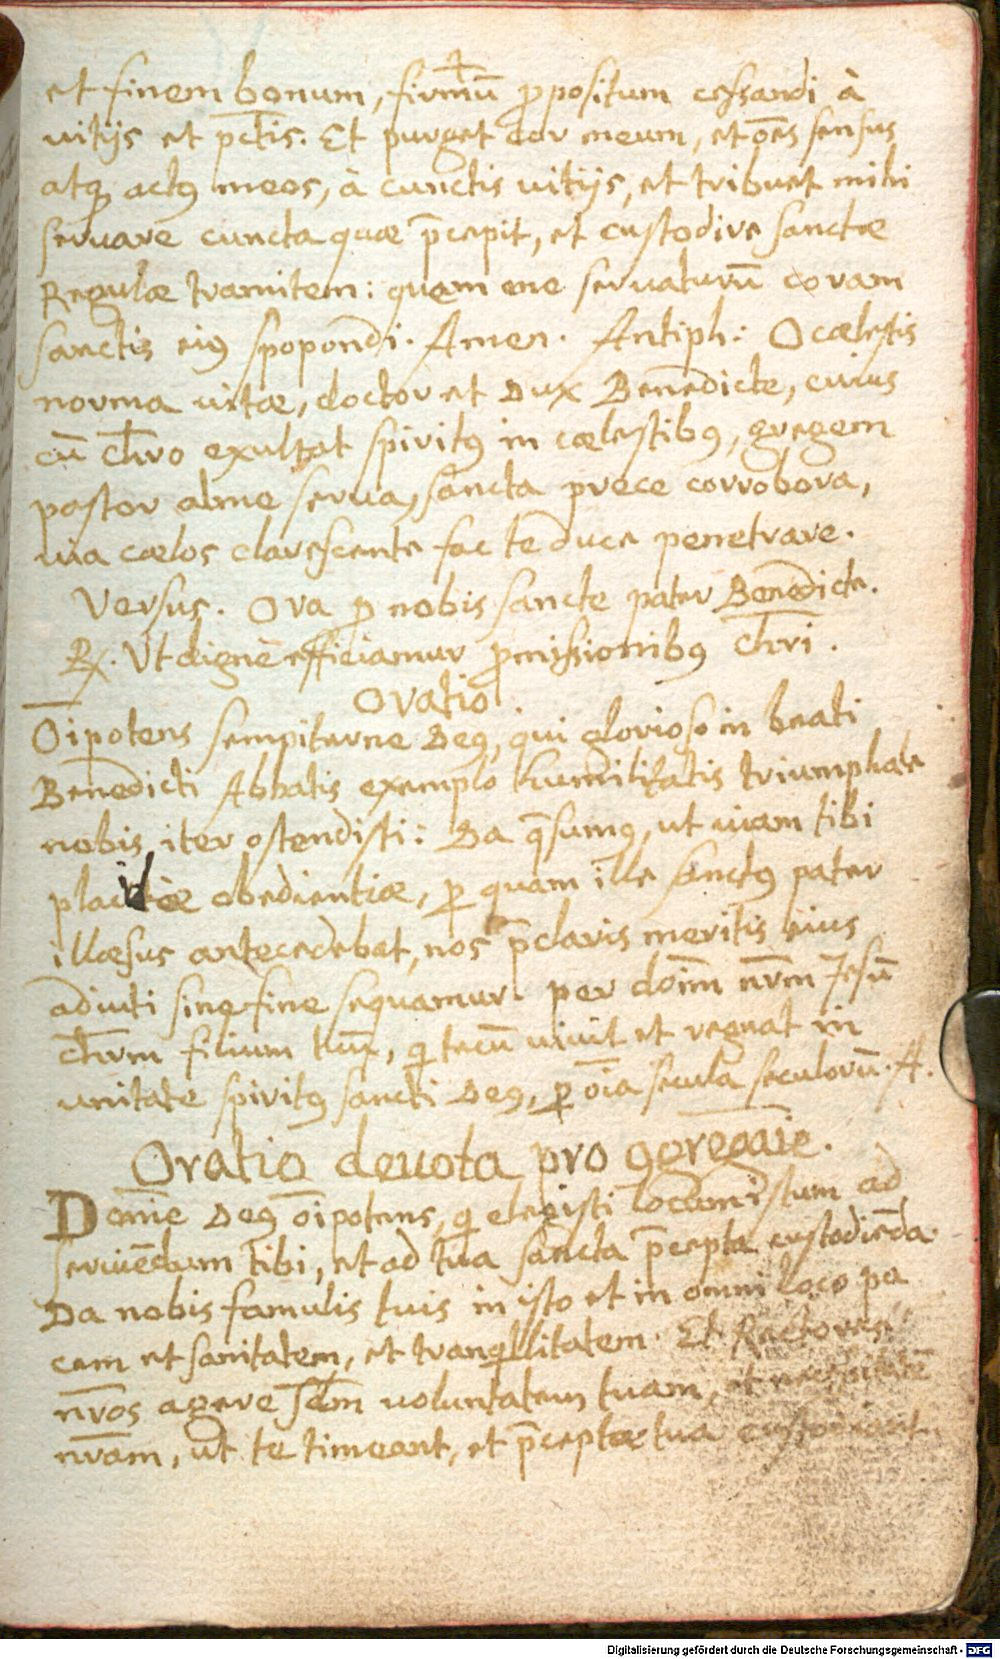 et finem bonum, firmū ꝓpositum cessandi à
vitijs et pctis. Et purget cor meum, et oēs sensus
atqꝫ actꝰ meos, à cunctis vitijs, et tribuat mihi
seruare cuncta quæ p̄cepit, et custodire sanctæ
Regulæ tramitem: quem me seruaturū coram
sanctis eiꝰ spopondi. Amen. Antiph: O cælestis
norma vitæ, doctor et Dux Benedicte, cuius
cū Chro exultat spiritꝰ in cælestibꝰ, gregem
pastor alme serua, sancta prece corrobora,
uia cælos clarescente fac te duce penetrare.
Versus. Ora ꝓ nobis sancte pater Benedicte.
℟. Vt digne efficiamur ꝓmissionibꝰ Chri.
Oratio.
Oīpotens sempiterne Deꝰ, qui glorioso in beati
Benedicti Abbatis exemplo humilitatis triumphale
nobis iter ostendisti: Da q̄sumꝰ, ut uiam tibi
placidæ obedientiæ, ꝑ quam ille sanctꝰ pater
illæsus antecedebat, nos p̄claris meritis eius
adiuti sine fine sequamur. per doīm nr̄m Jesū
Chrm filium tuū, q tecū uiuit et regnat in
unitate spiritꝰ sancti Deꝰ, ꝑ oīa secula seculorū. A.
Oratio deuota pro ꝯgregaōe.
Domīe Deꝰ oīpotens, q elegisti locum istum ad
seruiēdum tibi, et ad tua sancta p̄cepta custodiēda.
Da nobis famulis tuis in isto et in omni loco pa
cem et sanitatem, et tranqllitatem. Et Rectores
nr̄os agere scdm uoluntatem tuam, et necessitatē
nr̄am, ut te timeant, et p̄cepta tua custodiant.
Digitalisierung gefördert durch die Deutsche Forschungsgemeinschaft - DFG